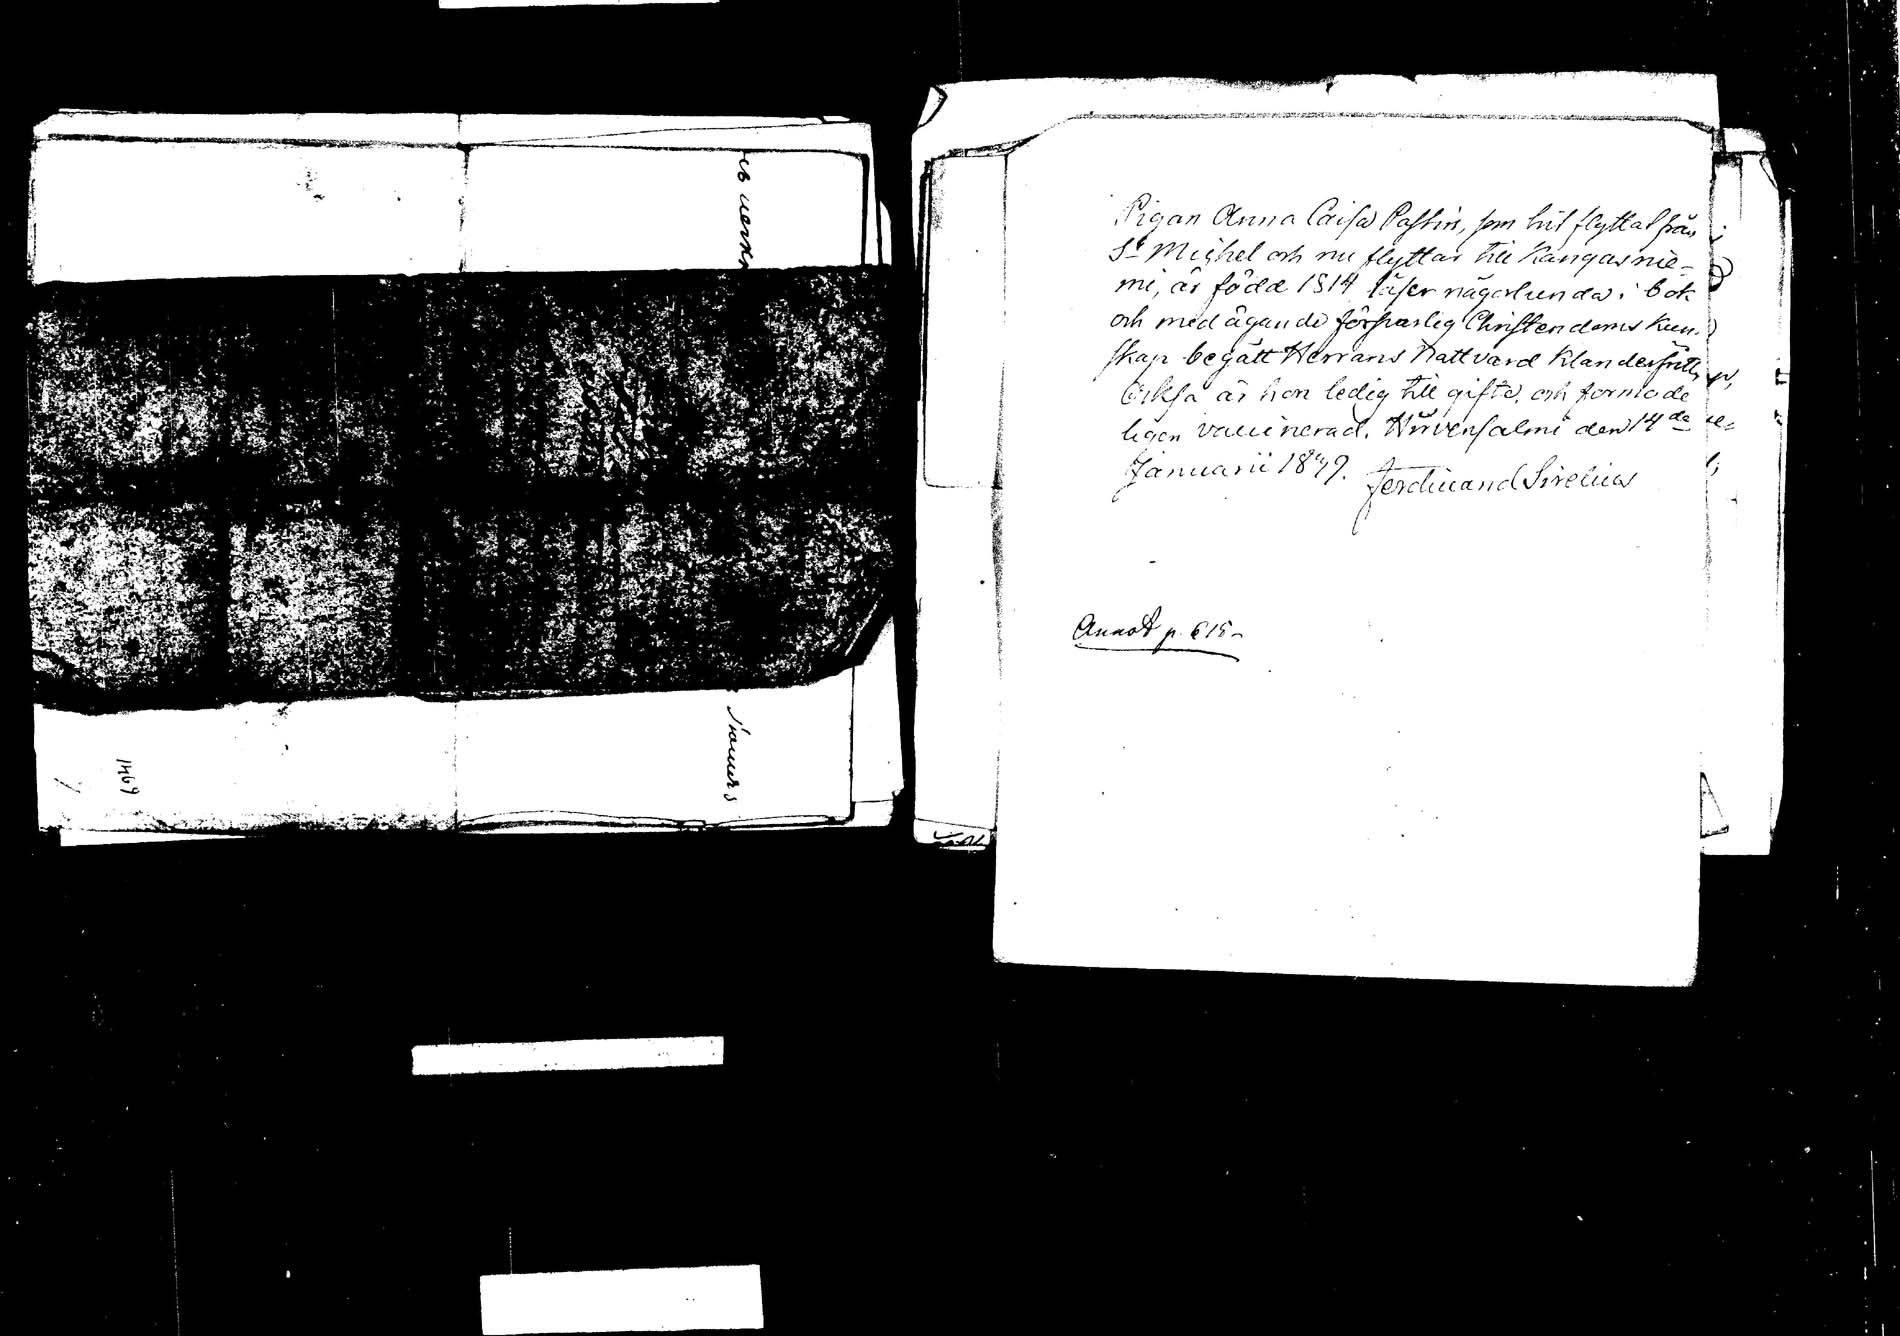 Pigan Anna Caisa Paskin, som hit flyttat från
St Michel och nu flyttar till Kangasnie-
mi, är född 1814 läser någorlunda i bok
och med ägande försvarlig Christendoms kun-
skap begått Herrans Nattvard klanderfritt,
Också är hon ledig till gifte, och formode
ligen vaccinerad. Hirvensalmi den 14da
Januarii 1849.
Ferdinand Sirelius
Annot p. 615-
1469